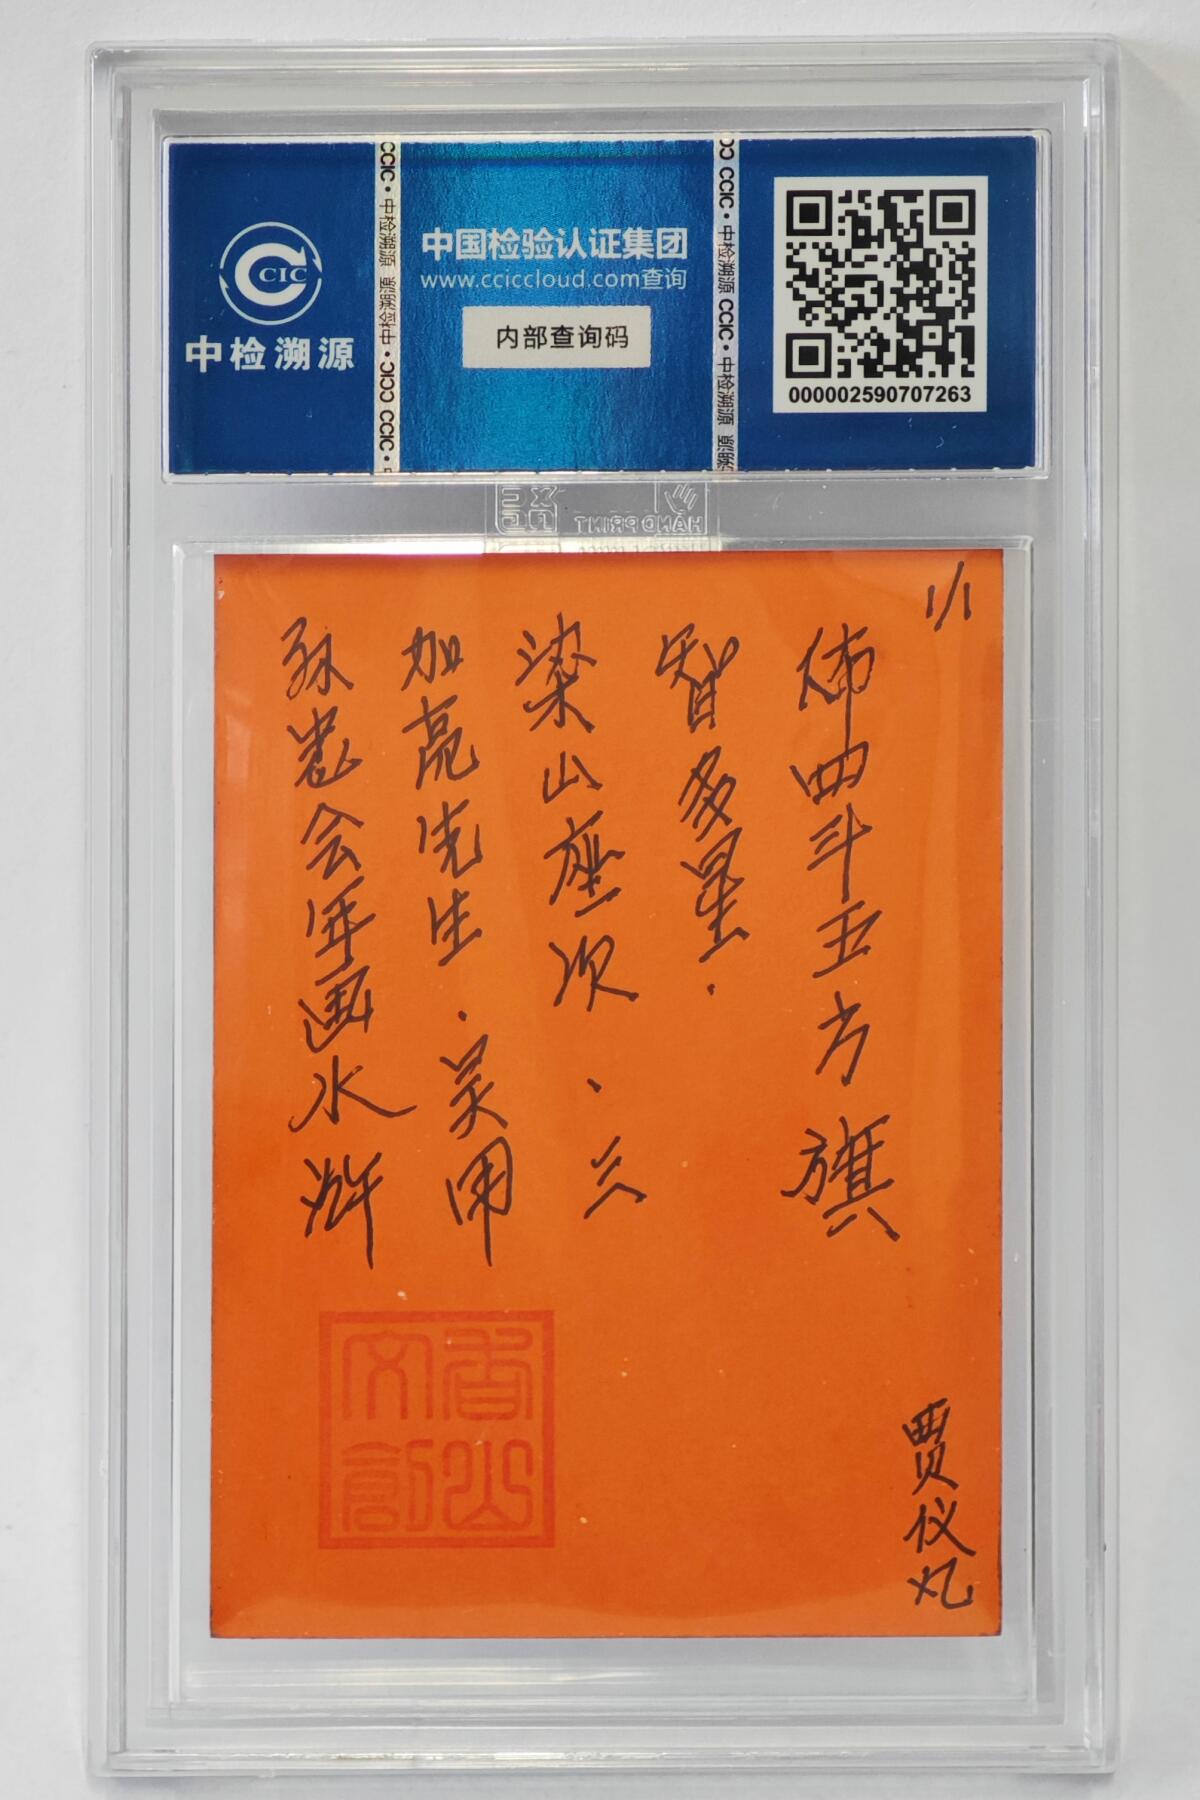 CCIC
中检溯源
中国检验认证集团
www.cciccloud.com查询
内部查询码
000002590707263
CCIC·中检溯源 CCIC·中检溯源
HANDPRINT
1/1
佈四斗五方旗
智多星·
梁山座次·三
加亮先生·吴用
孙忠会年画水浒
香山文創
贾仪